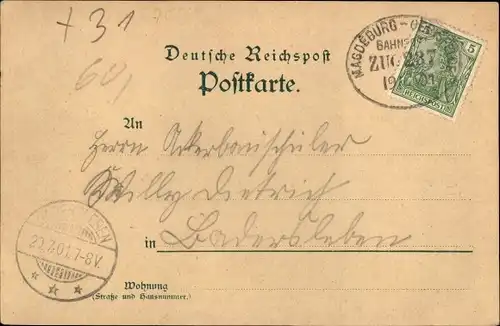 + 31
60,
Deutsche Reichspost
Postkarte.
MAGDEBURG
ZUG 237
5
REICHSPOST
An
Herrn Ackerbauschüler
Willy Dietrich
in Badersleben
7-8V.
Wohnung
(Straße und Hausnummer.)